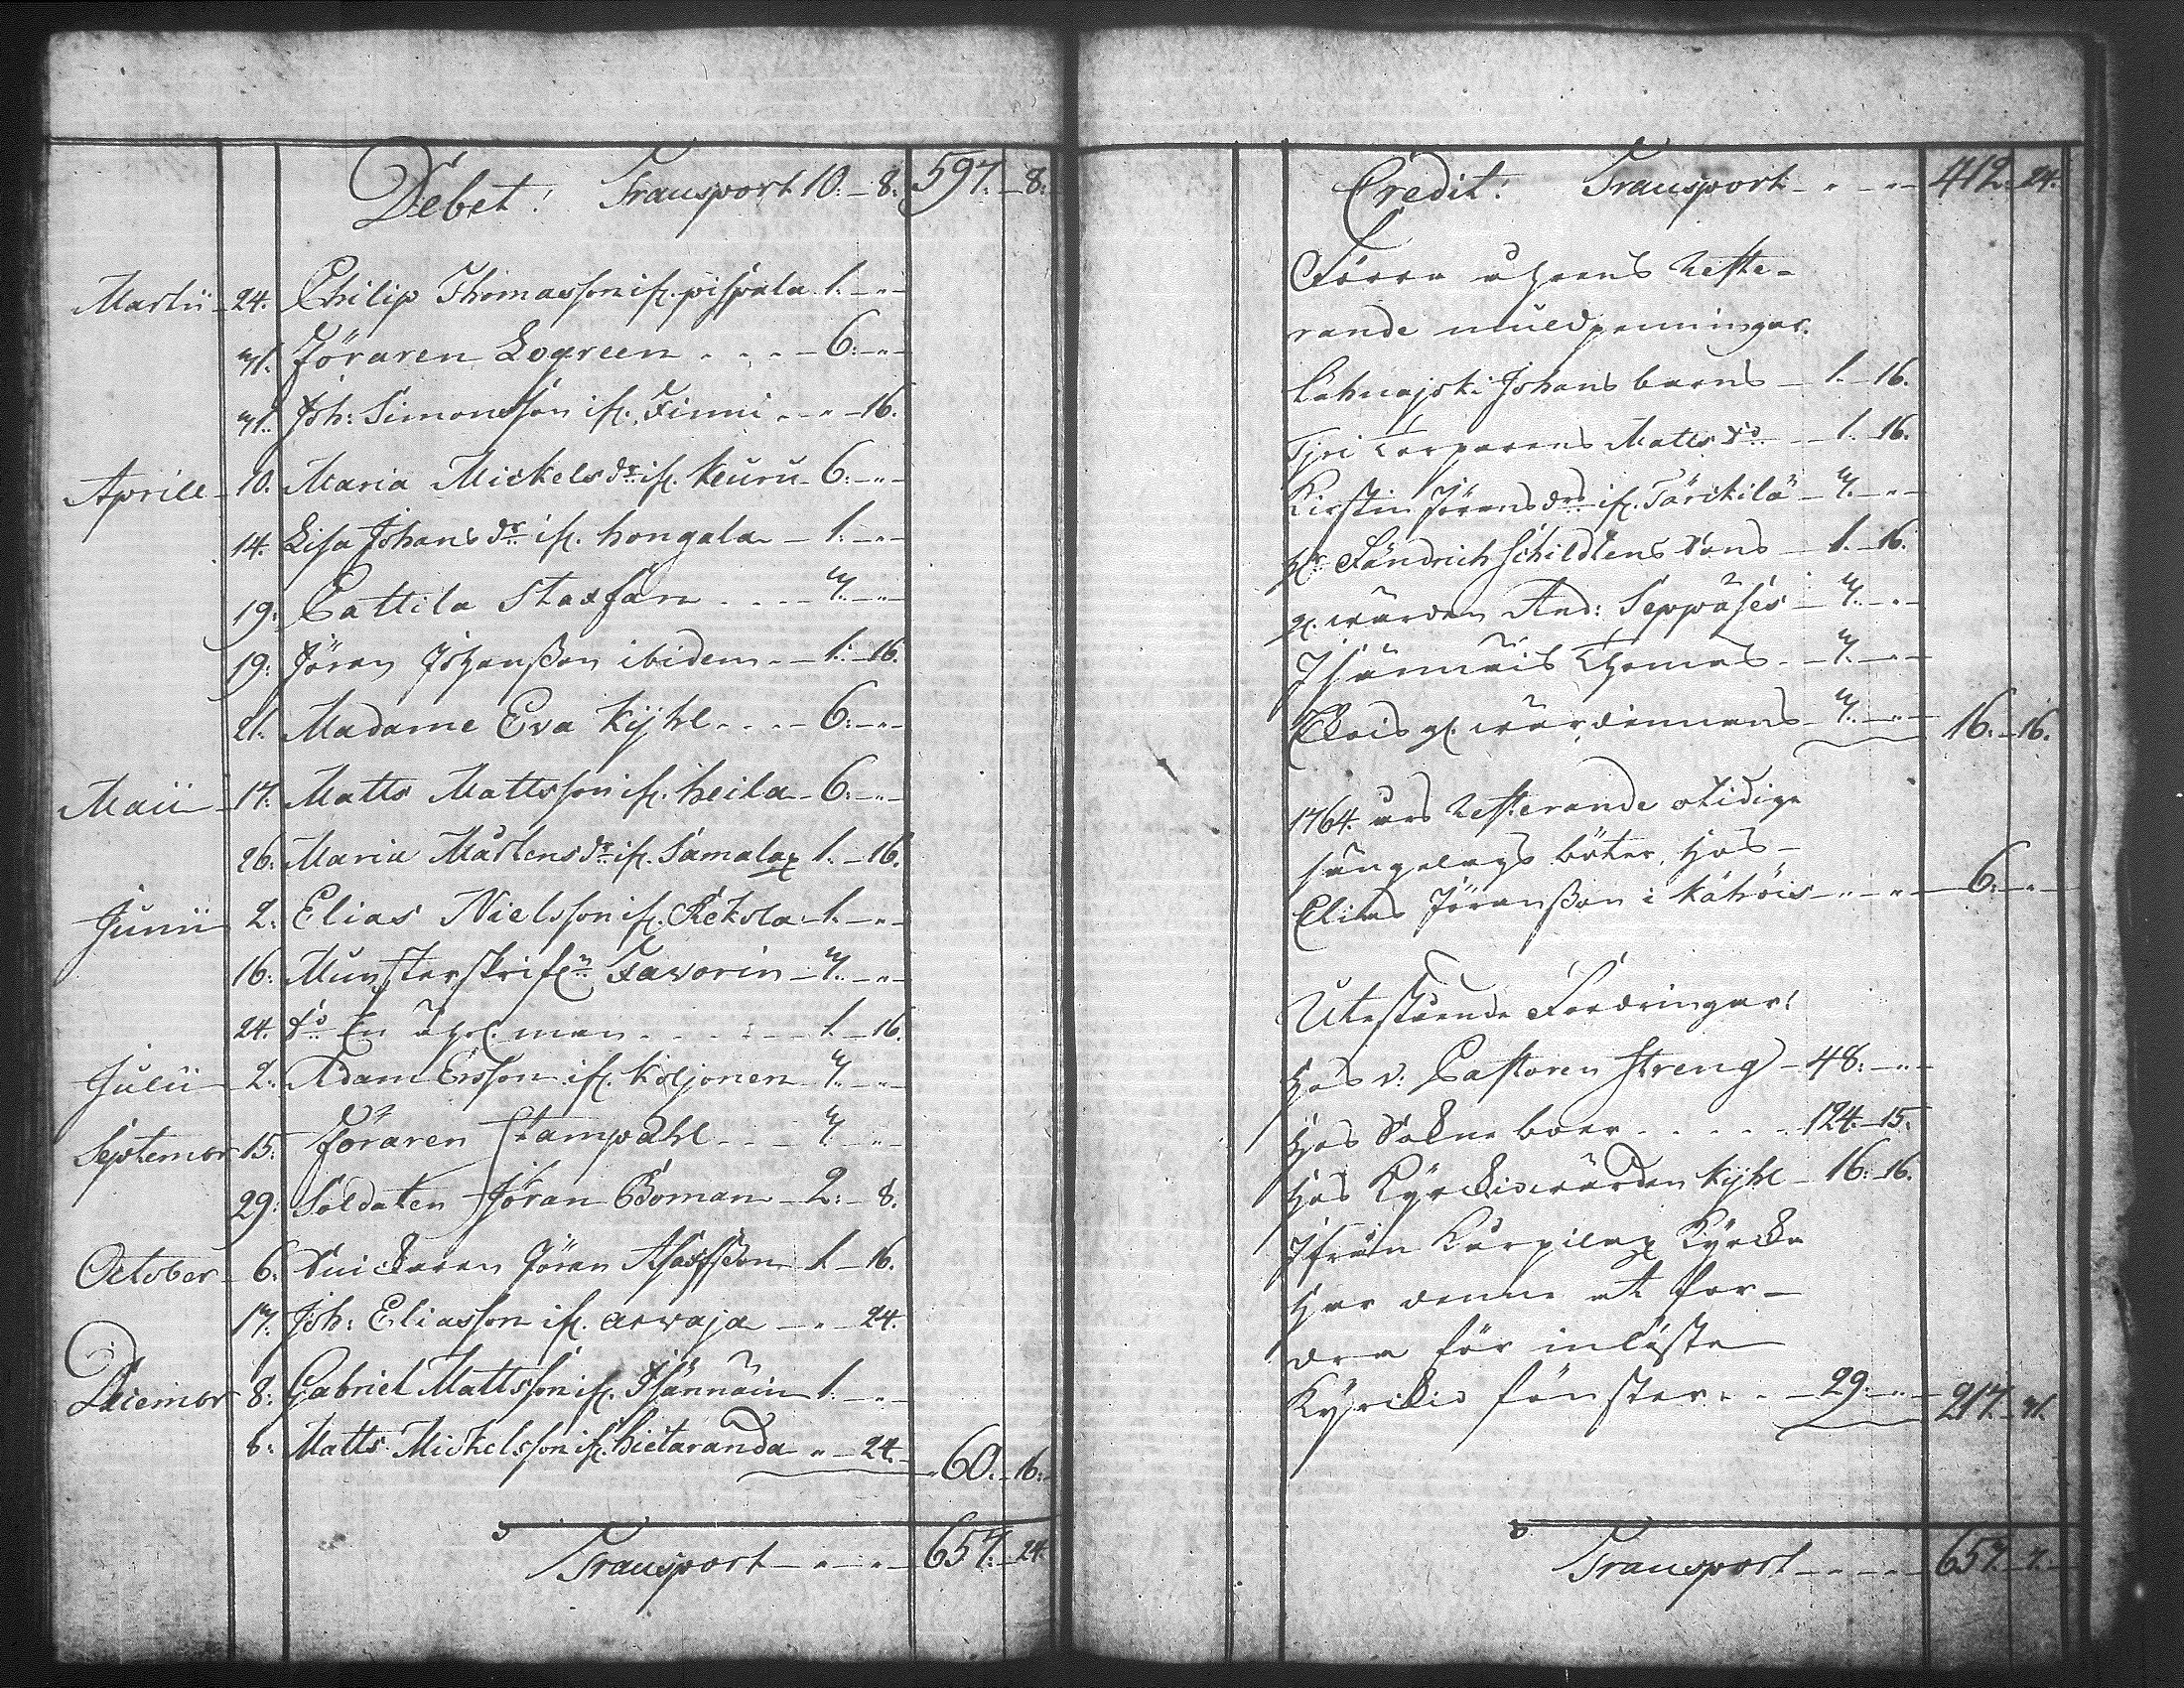 Debet! Transport 10.-8. 597.-8.
Martii 24. Philip Thomasson if. pispala 1.-"-
31. Föraren Logreen - - - 6:-"-
31. Joh: Simonsson if. Finni - " - 16.
Aprill 10. Maria Mickels dr. if. Keuru 6:-"-
14. Lisa Johans dr. if. hongala - 1:-"-
19: Cattila Staffan - - - 3.-"-
19: Jöran Johansson ibidem - 1.-16.
21. Madame Eva Kijhl - - - 6:-"-
Maii 17. Matts Mattsson if. heila - 6:-"-
26. Maria Mårtens dr. if. Samalax 1.-16.
Junii 2. Elias Nielsson if. Rekola 1.-"-
16. Munsterskrifn. Favorin - 3.-"-
24. do En åhl. man - - - 1.-16.
Julii 2. Adam Ersson if. Koljonen 3.-"-
Septembr 15. Föraren Stampahl - - - 3.-"-
29: Soldaten Jöran Boman - 2:-8.
October 6. Snickaren Jöran 1.-16.
17. Joh: Eliasson if. arvaja - " - 24.
Decembr 8: Gabriel Mattsson if. Isännäin 1.-"-
8: Matts Mickelsson if. hietaranda " - 24. 60.-16.
Transport - " - " - 657.-24.
Credit! Transport - " - " - 412.-24.
Förra åhrens Reste-
rande muldpenningar.
Lahnajoki Johans barns - 1.-16.
Torparens Matts do - 1.-16.
Kirstin Jörens drs if. Tärckilä - 3.-"-
hr Fändrich Schildtens Sons - 1.-16.
And: Seppäses - 3.-"-
Isännäis Thomas - 3.-"-
- 3.-"- 16.-16.
1764. års Resterande otidige
sängelags böter, hos-
Elias Jöransson i Kähöis - " - " - 6.-"-
Utestående Fordringar!
hos v: Pastoren Streng - 48:-"-
hos Sockne boer - - - - 124.-15.
hos Kyrckiowärden Kyhl - 16:-16.
Ifrån Karpilax Kyrcka
har denne at for-
dra för inlöste
Kyrckio fönster - - 29:-"- 217.-31.
Transport - - - - 657.-7.